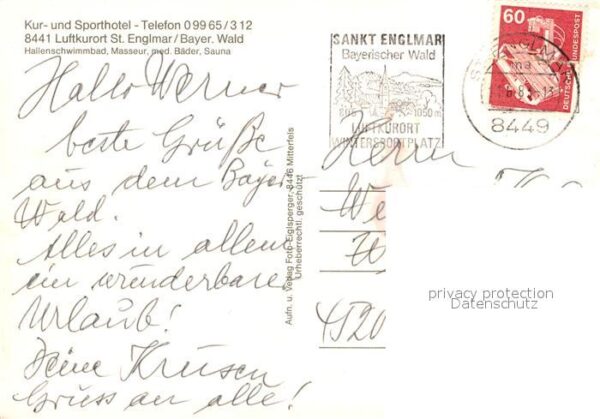 Kur- und Sporthotel - Telefon 0 99 65 / 3 12
8441 Luftkurort St. Englmar / Bayer. Wald
Hallenschwimmbad, Masseur, med. Bäder, Sauna
Hallo Werner
beste Grüße
aus dem Bayer
Wald.
Alles in allem
ein wunderbarer
Urlaub!
Deine Krusen
Gruss an alle!
Aufn. u. Verlag Foto-Eiglsperger, 8446 Mitterfels
Urheberrechtl. geschützt
SANKT ENGLMAR
Bayerischer Wald
1050 m
LUFTKURORT
WINTERSPORTPLATZ
60
DEUTSCHE BUNDESPOST
8449
Herrn
We
4520
privacy protection
Datenschutz